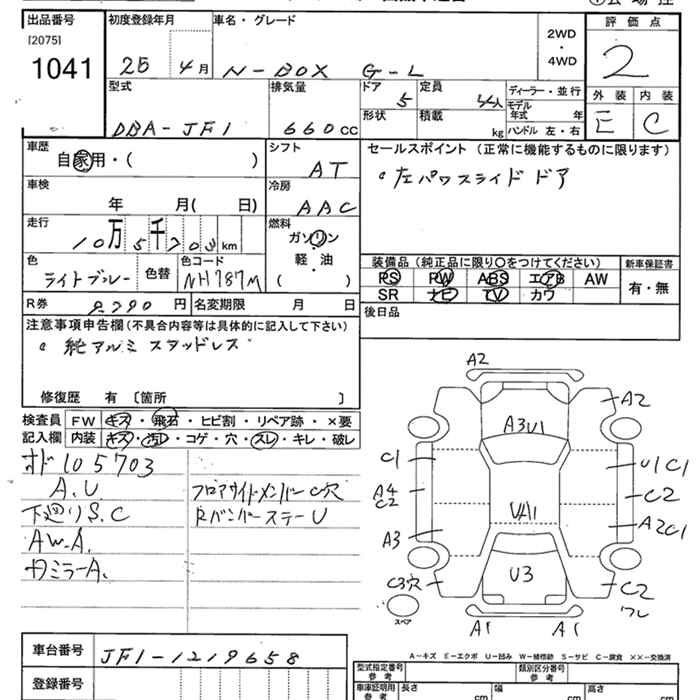 出品番号 初度登録年月 車名・グレード 2WD・4WD 評価点
[2075]
1041 25年 4月 N-BOX G-L 2
型式 排気量 ドア 5 定員 4人 ディーラー・並行 外装 内装
モデル年式 年
DBA-JF1 660cc 形状 積載 kg ハンドル 左・右 E C
車歴 シフト セールスポイント (正常に機能するものに限ります)
自家用・( ) AT 左パワスライドドア
車検 冷房
年 月( 日) AAC
走行 燃料
10万5千703km ガソリン・軽・油
( )
装備品 (純正品に限り○をつけてください) 新車保証書
色 色替 色コード PS PW ABS エアB AW 有・無
ライトブルー NH787M SR ナビ TV カワ
R券 9,790円 名変期限 月 日 後日品
注意事項申告欄 (不具合内容等は具体的に記入して下さい)
純アルミスタッドレス
修復歴 有 〔箇所 〕
検査員 FW キズ・飛石・ヒビ割・リペア跡・×要
記入欄 内装 キズ・汚レ・コゲ・穴・スレ・キレ・破レ
オド105703
A.U フロアサイドメンバーC穴
下廻りS.C RバンパーステーU
AW.A.
カミラーA.
A2
A2
A3U1
C1 U1C1
A4
C2 C2
UA11
A3 A2C1
U3
C3穴 C2
ワレ
スペア
A1 A1
A-キズ E-エクボ U-凹み W-補修跡 S-サビ C-腐食 ××-交換済
車台番号 JF1-1219658
登録番号
型式指定番号 参考 類別区分番号 参考
車庫証明用 参考 長さ cm 幅 cm 高さ cm